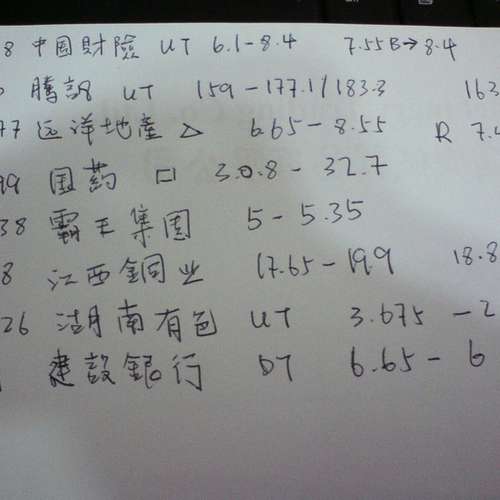 8 中国財險 UT 6.1-8.4 7.55B→8.4
騰訊 UT 159-177.1/183.3 163
77 远洋地產 △ 6.65-8.55 R 7.4
99 国药 口 30.8-32.7
38 霸王集團 5-5.35
8 江西銅业 17.65-19.9 18.8
26 湖南有色 UT 3.675-2
建設銀行 DT 6.65-6